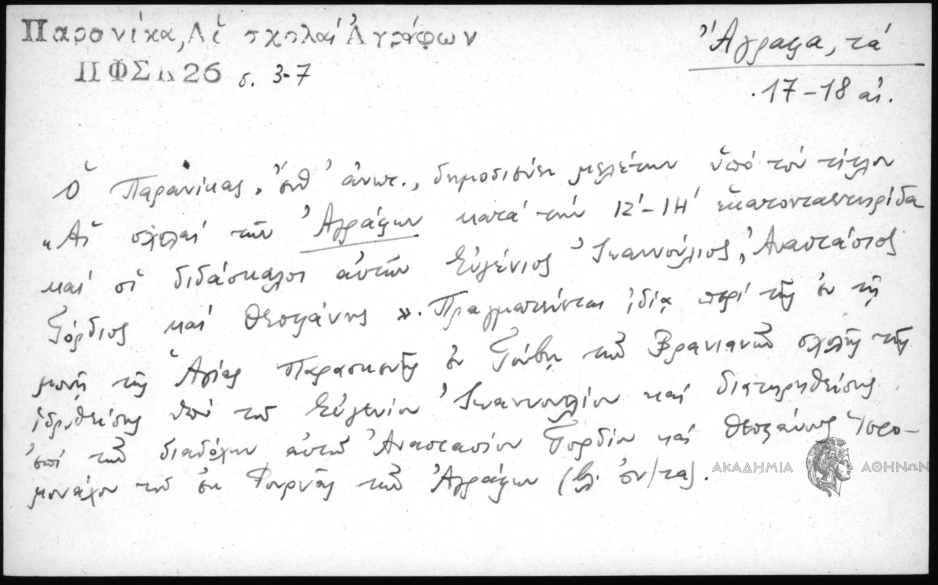 Παρανίκα, Αἱ σχολαί Ἀγράφων
ΠΦΣΚ 26 σ. 3-7
Ἄγραφα, τά
17-18 αἰ.
Ὁ Παρανίκας, ἔνθ' ἀνωτ., δημοσιεύει μελέτην ὑπό τόν τίτλον
«Αἱ σχολαί τῶν Ἀγράφων κατά τήν ΙΖ'-ΙΗ' ἑκατονταετηρίδα
καί οἱ διδάσκαλοι αὐτῶν Εὐγένιος Ἰωαννούλιος, Ἀναστάσιος
Γόρδιος καί Θεοφάνης». Πραγματεύεται ἰδίᾳ περί τῆς ἐν τῇ
μονῇ τῆς Ἁγίας Παρασκευῆς ἐν Γούβᾳ τῶν Βρανιανῶν σχολῆς τῆς
ἱδρυθείσης ὑπό τοῦ Εὐγενίου Ἰωαννουλίου καί διατηρηθείσης
ἐπί τῶν διαδόχων αὐτοῦ Ἀναστασίου Γορδίου καί Θεοφάνους Ἱερο-
μονάχου τοῦ ἐκ Φουρνᾶς τῶν Ἀγράφων
ΑΚΑΔΗΜΙΑ ΑΘΗΝΩΝ